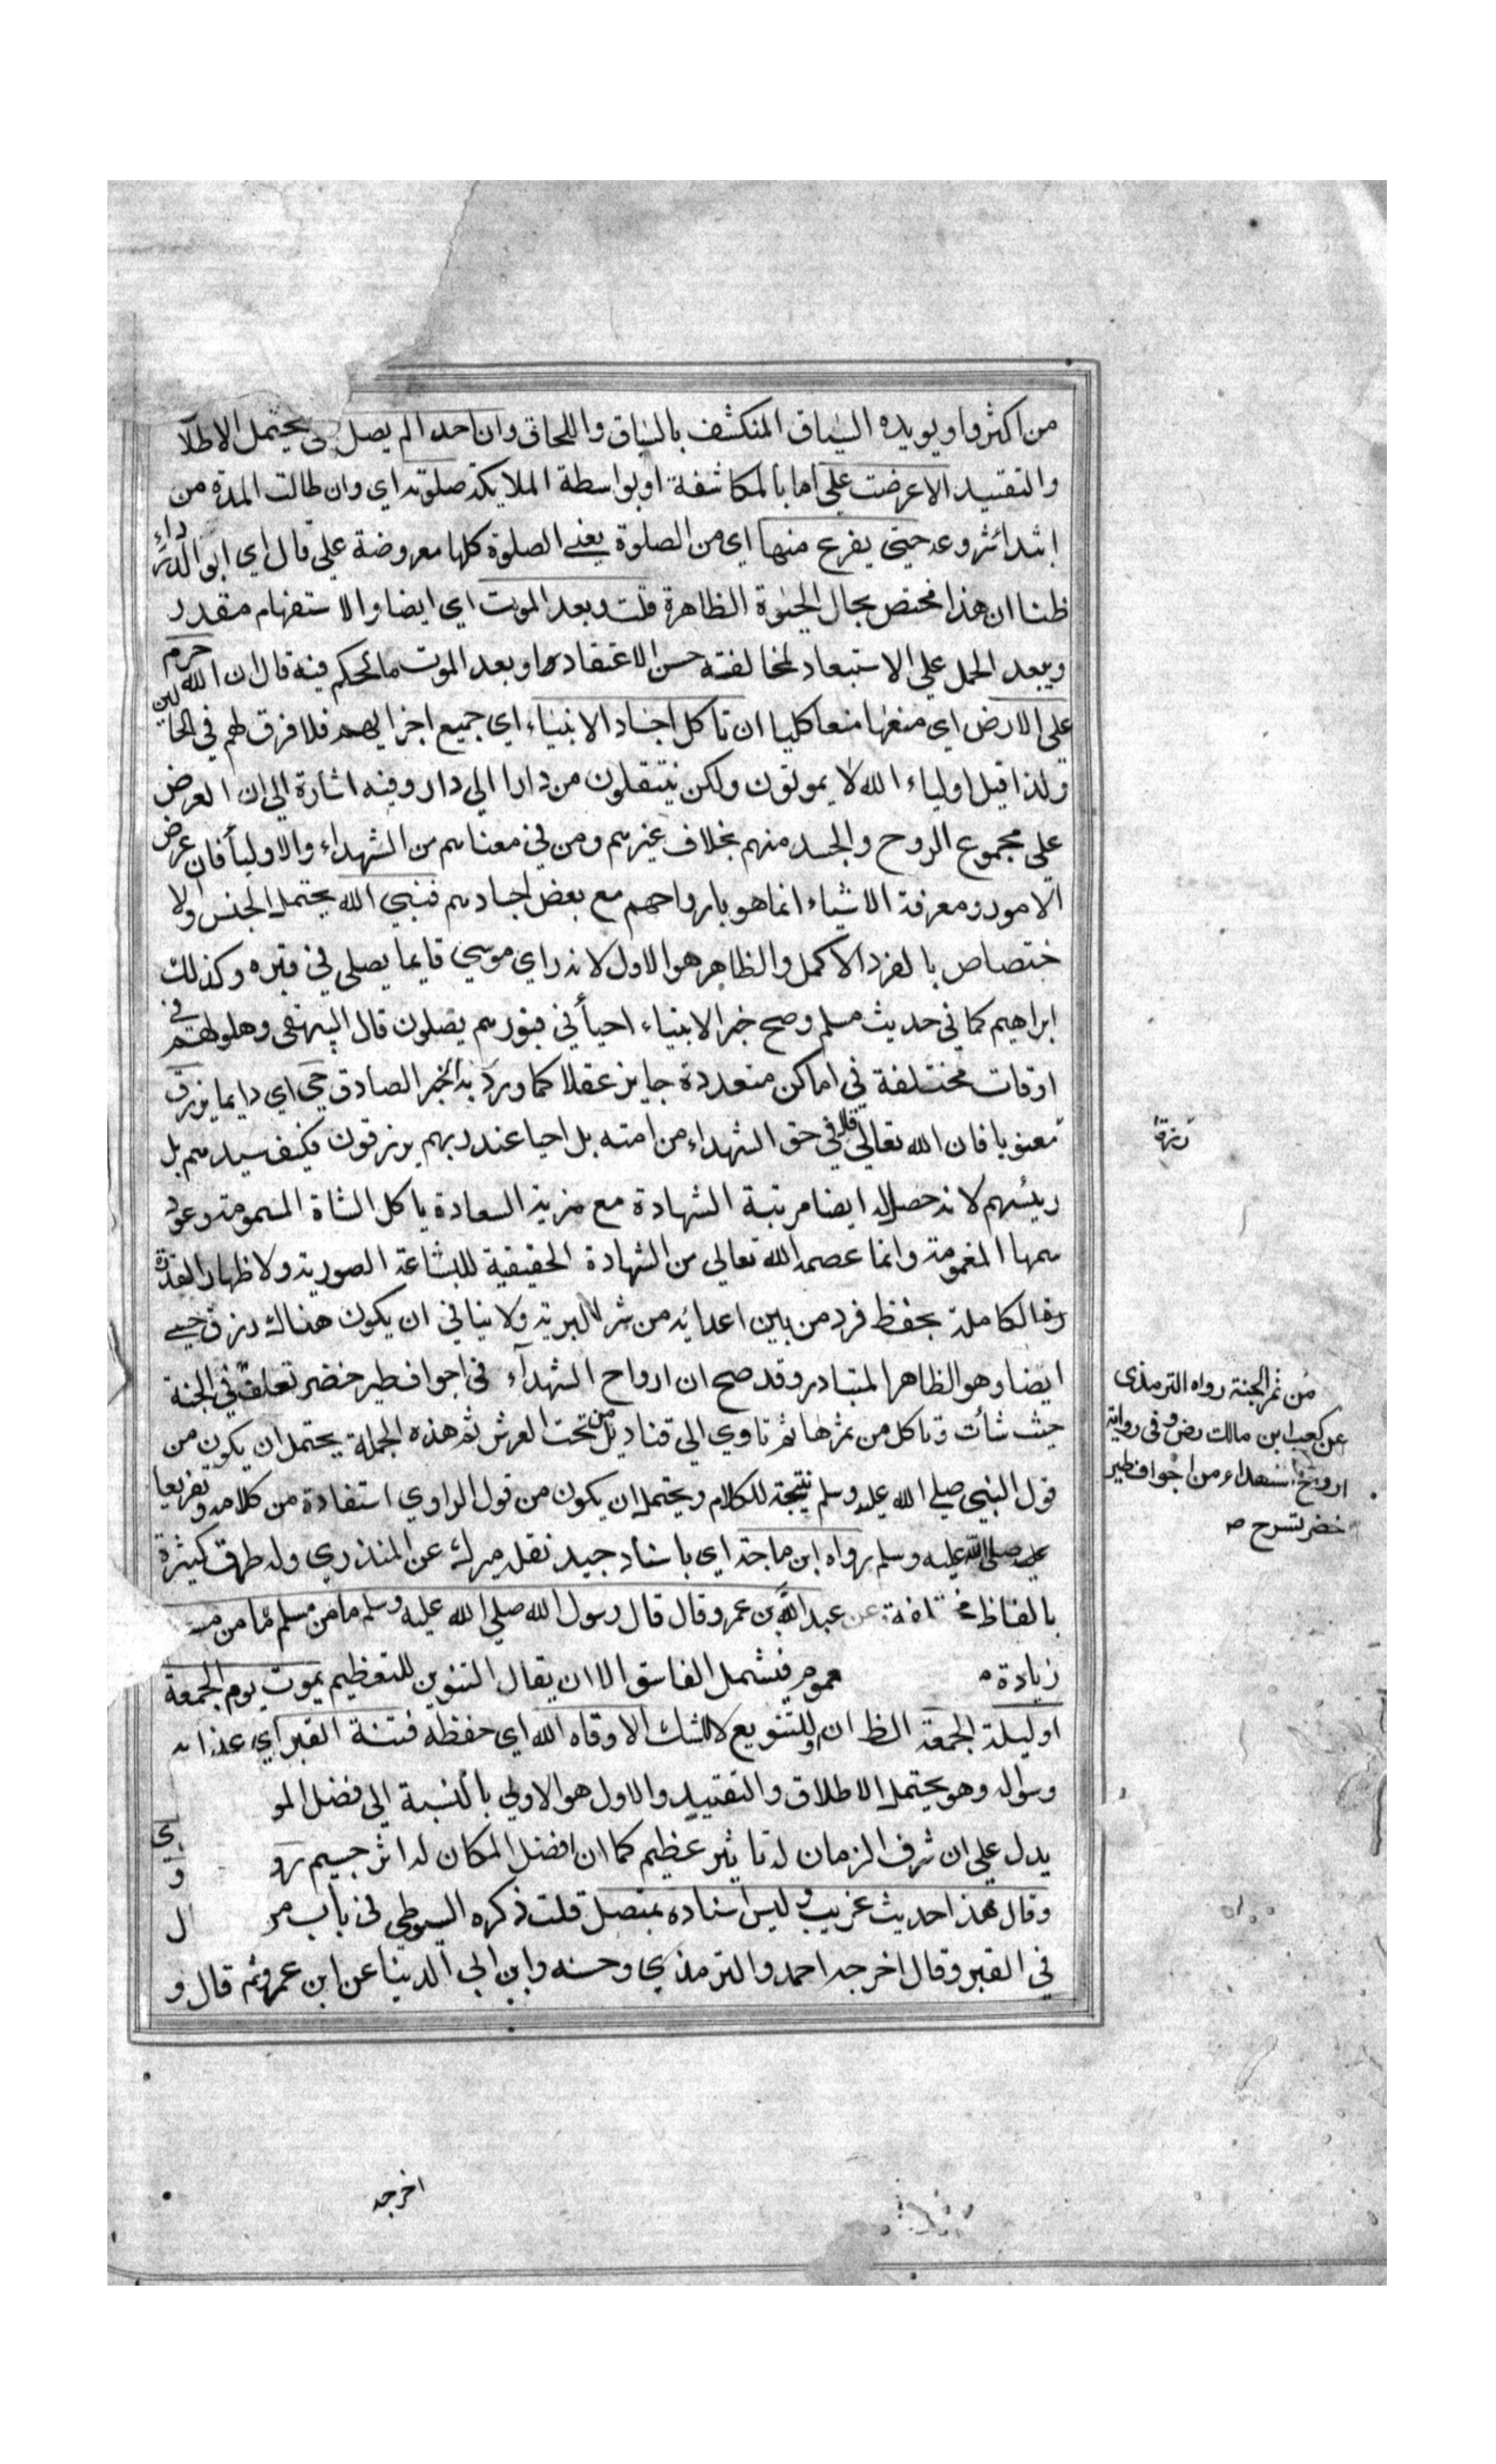 من اكثروا ويويده السياق المنكشف بالسباق واللحاق وان احدا لم يصل يحتمل الاطلا
والتقييد الا عرضت علي اما بالمكاشفة او بواسطة الملايكة صلوته اي وان طالت المدة من
ابتدائشروعه حتي يفرغ منها اي من الصلوة يعني الصلوة كلها معروضة علي قال اي ابو الدرداء
ظنا ان هذا مختص بحال الحيوة الظاهرة قلت وبعد الموت اي ايضا والاستفهام مقدر
ويبعد الحمل علي الاستبعاد لمخالفته حسن الاعتقاد اوبعد الموت ما الحكم فيه قال ان الله حرم
علي الارض اي منعها منعا كليا ان تاكل اجساد الانبياء اي جميع اجزايهم فلا فرق لهم في الحالين
ولذا قيل اولياء الله لا يموتون ولكن ينتقلون من دارا الي دار وفيه اشارة الي ان العرض
علي مجموع الروح والجسد منهم بخلاف غيرهم ومن في معناهم من الشهداء والاوليأ فان عرض
الامور ومعرفة الاشياء انما هو بارواحهم مع بعض اجسادهم فنبي الله يحتمل الجنس والا
ختصاص بالفرد الاكمل والظاهر هو الاول لانه راي موسي قايما يصلي في قبره وكذلك
ابراهيم كما في حديث مسلم وصح خبر الانبياء احيأ في قبورهم يصلون قال البيهقي وحلولهم في
اوقات مختلفة في اماكن متعددة جايز عقلا كما ورد به الخبر الصادق حي اي دايما يرزق
معنويا فان الله تعالي قال في حق الشهداء من امته بل احيا عند ربهم يرزقون فكيف سيدهم بل
رئيسهم لانه حصل له ايضا مرتبة الشهادة مع مزية السعادة باكل الشاة المسمومة وعود
سمها المغمومة وانما عصمه الله تعالي من الشهادة الحقيقية للبشاعة الصورية ولاظهار القدرة
الكاملة بحفظ فرد من بين اعدائه من شر البرية ولا ينافي ان يكون هناك رزق حسي
ايضا وهو الظاهر المتبادر وقد صح ان ارواح الشهدآء في اجواف طير خضر تعلق في الجنة
حيث شأت وتاكل من ثمرها ثم تاوي الي قناديل من تحت العرش ثم هذه الجملة يحتمل ان يكون من
قول النبي صلي الله عليه وسلم نتيجة للكلام ويحتمل ان يكون من قول الراوي استفادة من كلامه وتفريعا
عليه صلي الله عليه وسلم رواه ابن ماجة اي باسناد جيد نقله ميرك عن المنذري وله طرق كثيرة
بالفاظ مختلفة عن عبد الله بن عمرو قال قال رسول الله صلي الله عليه وسلم ما من مسلم ما من
زيادة عموم فيشمل الفاسق الا ان يقال التنوين للتعظيم يموت يوم الجمعة
او ليلة الجمعة الظ ان او للتنويع لا للشك الا وقاه الله اي حفظه فتنة القبر اي عذابه
وسواله وهو يحتمل الاطلاق والتقييد والاول هو الاولي بالنسبة الي فضل المو
يدل علي ان شرف الزمان له تاثير عظيم كما ان افضل المكان له اثر جسيم رو
وقال هذا حديث غريب وليس اسناده بمتصل قلت ذكره السيوطي في باب مر
في القبر وقال اخرجه احمد والترمذي وحسنه وابن ابي الدينا عن ابن عمرو ثم قال و
اخرجه
من ثمر الجنة رواه الترمذي
عن كعب ابن مالك رض وفي رواية
ارواح الشهداء من اجواف طير
خضر تسرح